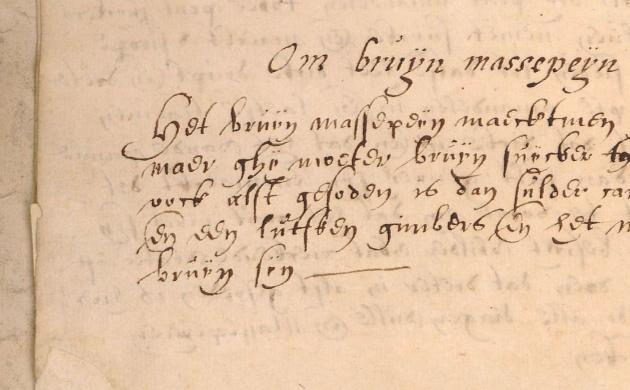 Om bruyn massepeyn
Het bruyn massepeyn maecktmen
maer ghy moeter bruyn suycker
oock alst gesoden is dan sulder
en een lutsken gimbers en het
bruyn syn